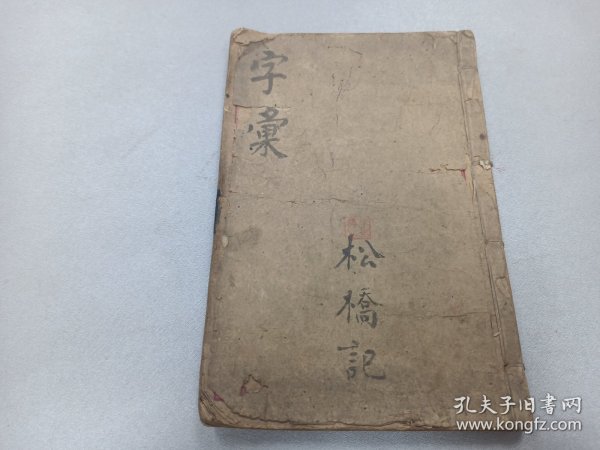 字彙
松橋記
孔夫子旧書网
www.kongfz.com